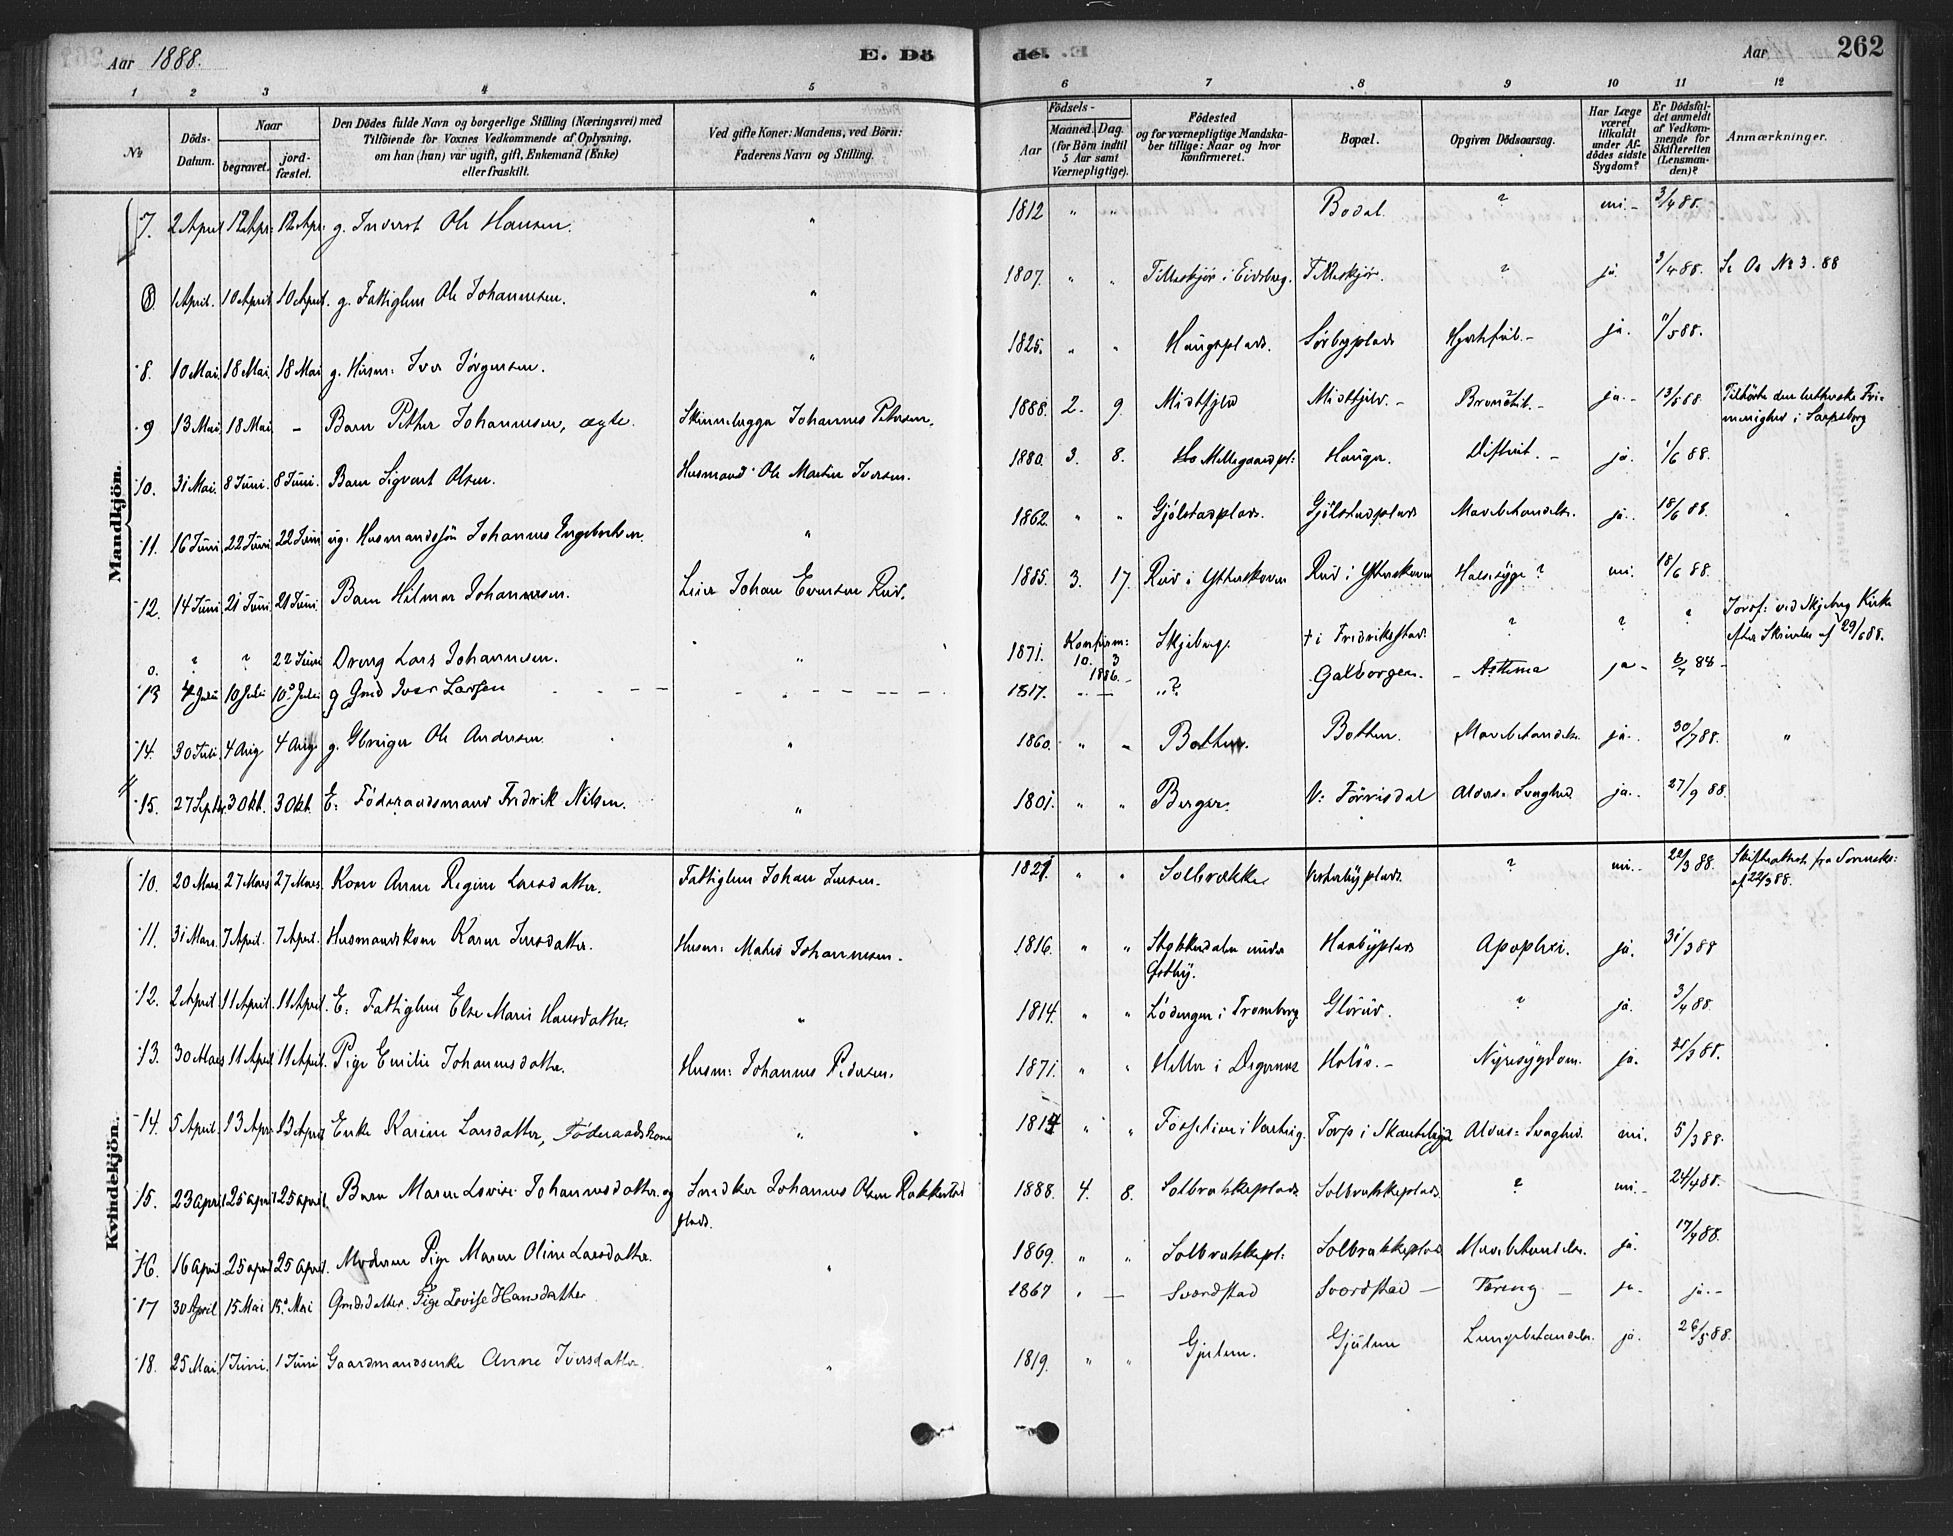 Aar 1888. E. Dö
de. Aar 262
1 2 3 4 5
6 7 8 9 10 11 12
№
Döds-
Datum.
Naar
begravet.
jord-
fæstet.
Den Dödes fulde Navn og borgerlige Stilling (Næringsvei) med
Tilföiende for Voxnes Vedkommende af Oplysning,
om han (hun) var ugift, gift, Enkemand (Enke)
eller fraskilt.
Ved gifte Koner: Mandens, ved Börn:
Faderens Navn og Stilling.
Födsels-
Aar
Maaned. Dag.
(for Börn indtil
5 Aar samt
Værnepligtige).
Födested
og for værnepligtige Mandska-
ber tillige: Naar og hvor
konfirmeret.
Bopæl.
Opgiven Dödsaarsag.
Har Læge
været
tilkaldt
under Af-
dödes sidste
Sygdom?
Er Dödsfal-
det anmeldt
af Vedkom-
mende for
Skifteretten
(Lensman-
den)?
Anmærkninger.
Mandkjön.
7. 2 April 12 Apr: 12 Apr: g. Inderst Ole Hansen. " 1812 " " Bodal. ? nei.- 3/4 88.
8. 1 April. 10 April 10 April. g. Fattiglem Ole Johannesen. " 1807. " " i Eidsberg. ? ja. 3/4 88. Se No 3. 88
8. 10 Mai. 18 Mai. 18 Mai g. Husm: Iver Jörgensen. " 1825. " " Haugsplads. Sörbyplads ja. 11/5 88.
9 13 Mai 18 Mai. - Barn Petter Johannesen, ægte. Johannes Petersen. 1888. 2. 9. Midtfjeld Midtfjeld. - ja.- 13/5 88. Tilhörte den lutherske Fri-
menighed i Sarpsborg
10. 31 Mai. 8 Juni. 8 Juni. Barn Sigvart Olsen. Husmand Ole Martin Iversen. 1880. 3. 8. Haugen. Difterit. - ja. 1/6 88.
11. 16 Juni 22 Juni 22 Juni ug. Husmandssön Johannes Engebretsen. " 1862. " " Gjölstadplads. Gjölstadplads Mavebetændelse. ja. 18/6 88. "
12. 14 Juni 21 Juni 21 Juni. Barn Hilmar Johannesen. Leier Johan Evensen Rud. 1885. 3. 17. Rud i Ytterskoven Rud i Ytterskoven Halssyge? nei. 18/6 88.
0. ? ? 22 Juni Dreng Lars Johannesen. " 1871. Konfirm:
10. 3
1886. Skjeberg. † i Fredriksstad. ? ? ? Jordf: ved Skjeberg Kirke
efter Skrivelse af 29/6 88.
13 4 Juli 10 Juli 10. Juli g Gmd Iver Larsen " 1817. - "? Galborgen. - Asthma ja - 6/7 88 -
14. 30 Juli. 4 Aug 4 Aug g. Ole Andersen. " 1860. " " Botten. Botten. Mavebetændelse ja. 30/7 88. "
15. 27 Septbr. 3 Okt. 3 Okt. E: Föderaadsmand Fredrik Nilsen. " 1801. " " Berger. V: Alders-Svaghed ja. 27/9 88.
Kvindekjön.
10. 20 Mars. 27 Mars 27 Mars. Kone Anne Regine Larsdatter. Fattiglem Johan Jensen. 1821. " " Solbrække ? nei.- 22/3 88. Skifteattest fra
af 22/3 88.
11. 31 Mars. 7 April. 7 April. Husmandskone Karen Jensdatter. Husm: Mathis Johannesen. 1816. " " under
Östby. Apoplexi. ja. 31/3 88
12. 2 April 11 April. 11 April. E: Fattiglem Else Marie Hansdatter. " 1814. " " i Tromborg Glörud. ? ja. 3/4 88.
13. 30 Mars 11 April 11 April. Pige Emilie Johannesdatter. Husm: Johannes Pedersen. 1871. " " i Degernes Nyresygdom. ja. /3 88.
14. 5 April. 13 Apr 13 April Enke Karine Larsdatter, Föderaadskone " 1814 " " i Varteig. Torp i Alders-Svaghed. nei. 5/3 88.
15. 23 April 25 april 25 april. Barn Maren Lovise Johannesdatter. og Snedker Johannes Olsen Rakkestad
plads. 1888. 4. 8. Solbrækkeplads Solbrækkeplads. ? nei.- 24/4 88.
16. 16 April 25 april 25 april. Moderen Pige Maren Oline Larsdatter. " 1869. " " Solbrækkepl: Solbrækkeplads Mavebetændelse. ja. 17/4 88.
17 30 April 15 Mai 15. Mai Gmdsdatter. Pige Lovise Hansdatter 1867 " - Sværdstad Sværdstad - Tæring - ja- ja.-
18. 25 Mai. 1 Juni. 1 Juni Gaardmandsenke Anne Iversdatter. " 1819. " " Gjulem. Gjulem Lungebetændelse. ja. 26/5 88.